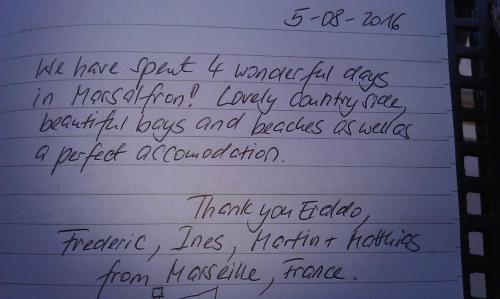 5-08-2016
We have spent 4 wonderful days
in Marsalforn! Lovely countryside,
beautiful bays and beaches as well as
a perfect accomodation.
Thank you
Frederic, Ines, Martin + Matthias
from Marseille, France.